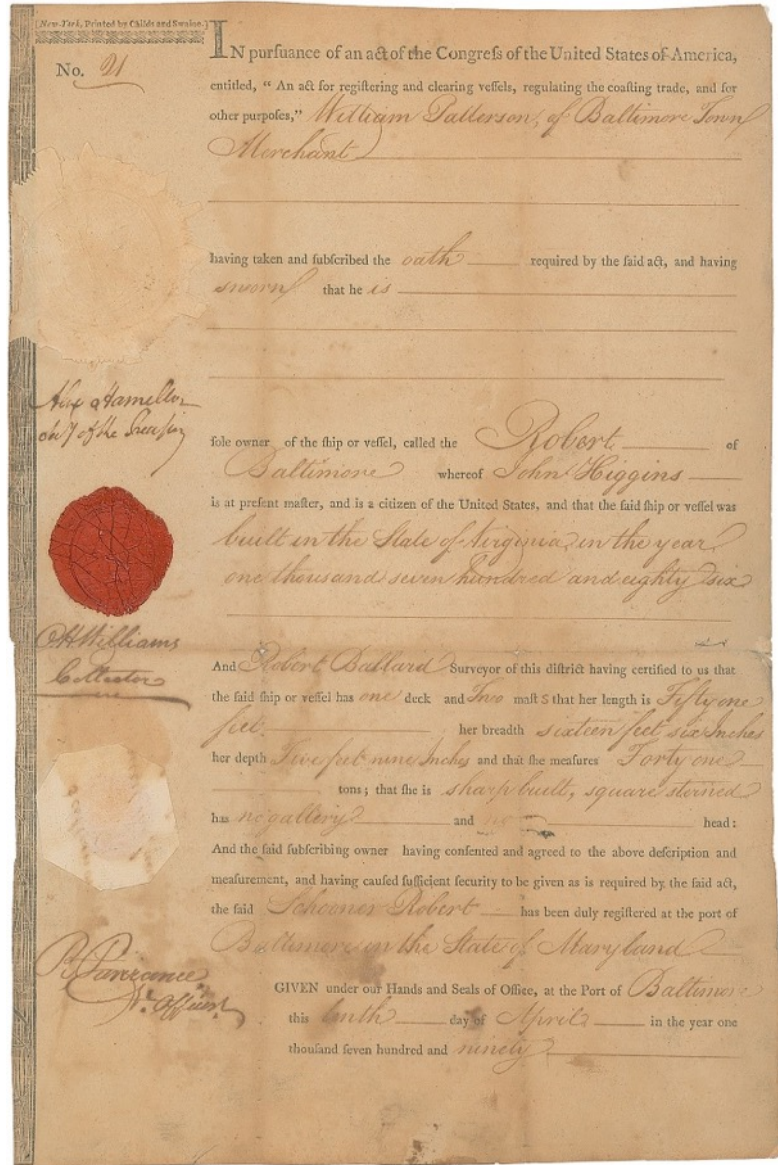 (New-York, Printed by Childs and Swaine.)
No. 21
IN pursuance of an act of the Congreſs of the United States of America,
entitled, “ An act for regiſtering and clearing veſſels, regulating the coaſting trade, and for
other purpoſes,” William Patterson, of Baltimore Town
Merchant
having taken and ſubſcribed the oath required by the ſaid act, and having
sworn that he is
ſole owner of the ſhip or veſſel, called the Robert of
Baltimore whereof John Higgins
is at preſent maſter, and is a citizen of the United States, and that the ſaid ſhip or veſſel was
built in the State of Virginia in the year
one thousand seven hundred and eighty six
And Robert Ballard Surveyor of this diſtrict having certified to us that
the ſaid ſhip or veſſel has one deck and Two maſt s that her length is Fifty one
feet her breadth sixteen feet six Inches
her depth Five feet nine Inches and that ſhe meaſures Forty one
tons ; that ſhe is sharp built, square sterned
has no gallery and no head :
And the ſaid ſubſcribing owner having conſented and agreed to the above deſcription and
meaſurement, and having cauſed ſufficient ſecurity to be given as is required by the ſaid act,
the ſaid Schooner Robert has been duly regiſtered at the port of
Baltimore in the State of Maryland
GIVEN under our Hands and Seals of Office, at the Port of Baltimore
this tenth day of April in the year one
thouſand ſeven hundred and ninety
Alex Hamilton
Secy of the Treasury
O H Williams
Collector
Officer